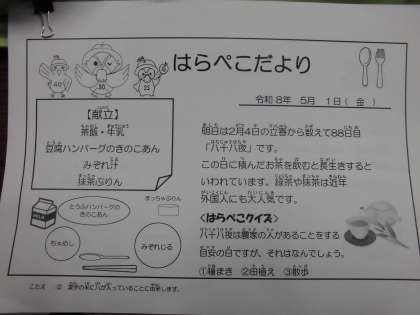 はらぺこだより
令和8年 5月 1日(金)
【献立】
茶飯・牛乳
豆腐ハンバーグのきのこあん
みぞれ汁
抹茶ぷりん
明日は2月4日の立春から数えて88日目
「八十八夜」です。
この日に積んだお茶を飲むと長生きすると
いわれています。緑茶や抹茶は近年
外国人にも大人気です。
<はらぺこクイズ>
八十八夜は農家の人があることをする
目安の日ですが、それはなんでしょう。
①種まき ②田植え ③散歩
とうふハンバーグの
きのこあん
まっちゃぷりん
ちゃめし
みぞれじる
こたえ ② 漢字の米に八が入っていることに由来します。